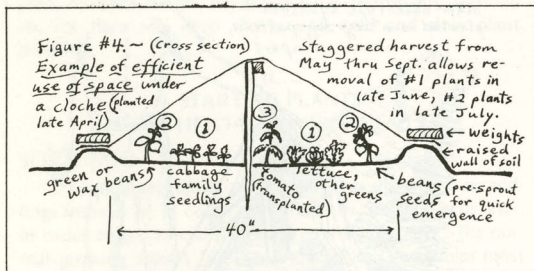 Figure #4. ~ (Cross section)
Example of efficient
use of space under
a cloche (planted
late April)
Staggered harvest from
May thru Sept. allows re-
moval of #1 plants in
late June, #2 plants
in late July.
weights
raised
wall of soil
② ① ③ ① ②
green or
wax beans
cabbage
family
seedlings
tomato
(transplanted)
lettuce,
other
greens
beans (pre-sprout
seeds for quick
emergence
40"